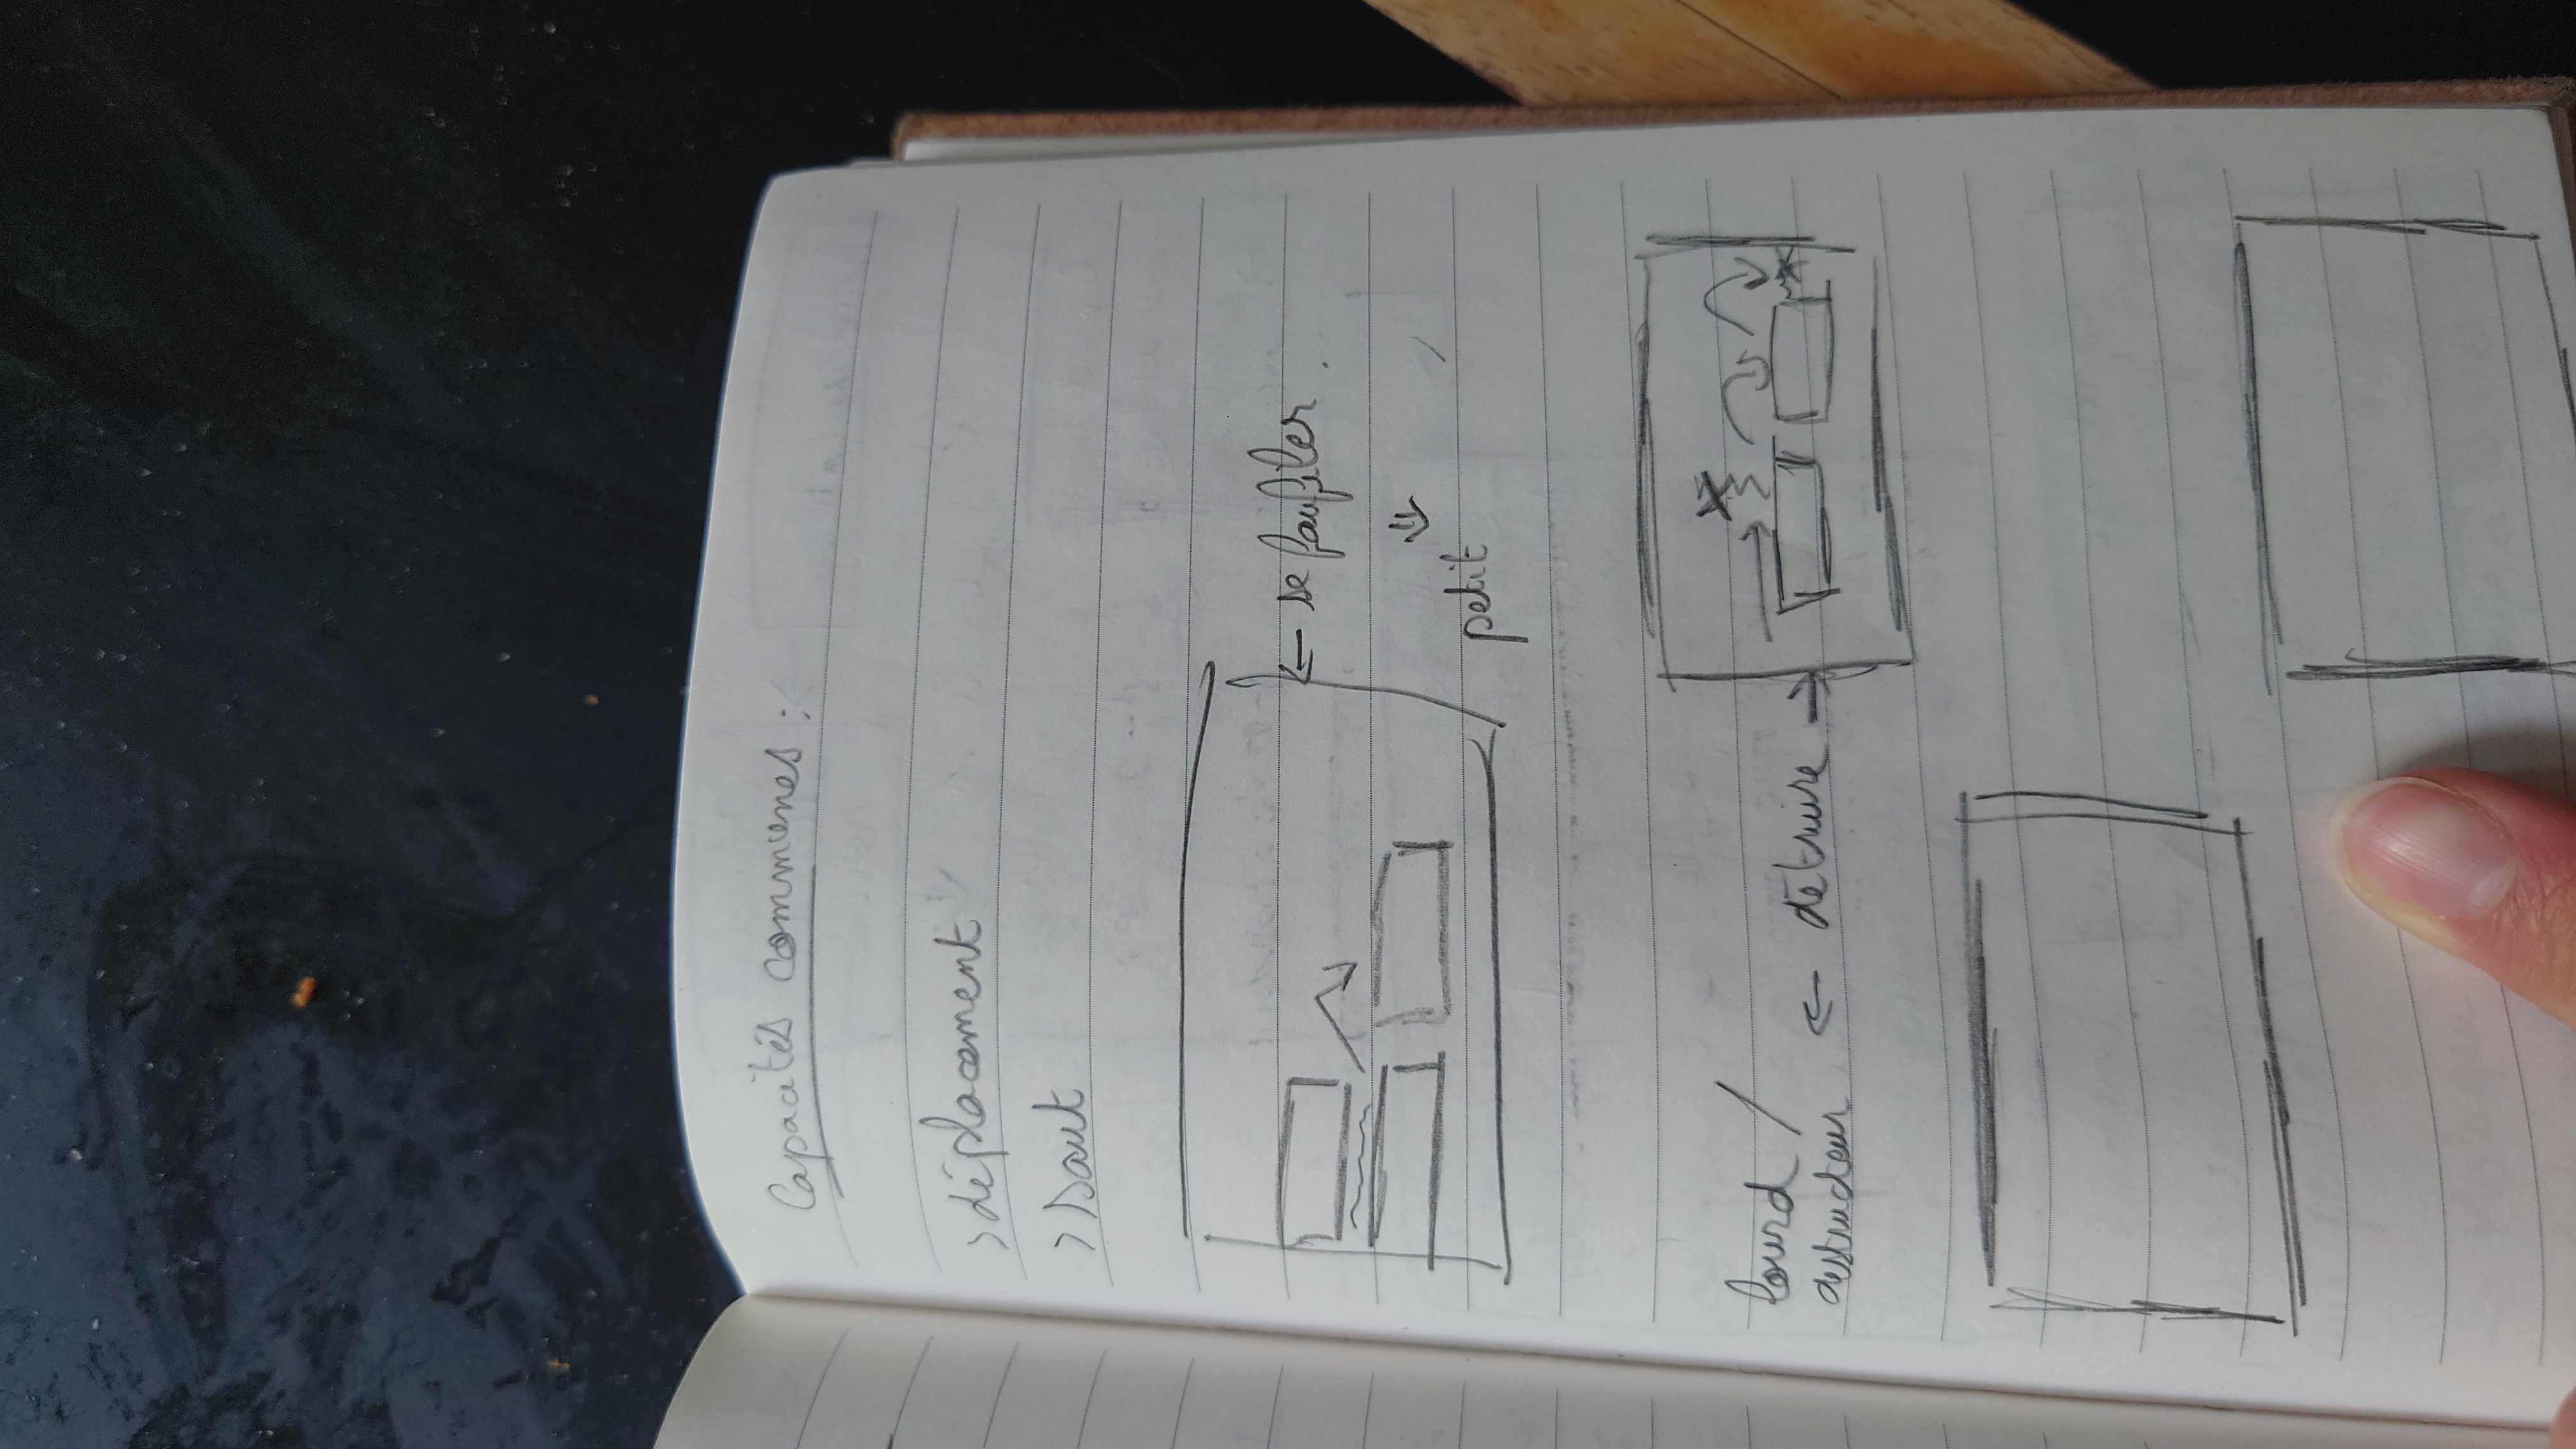 Capacités communes :
> déplacement
> Saut
← se faufiler
⇓
petit
lourd /
destructeur ⇐ détruire →